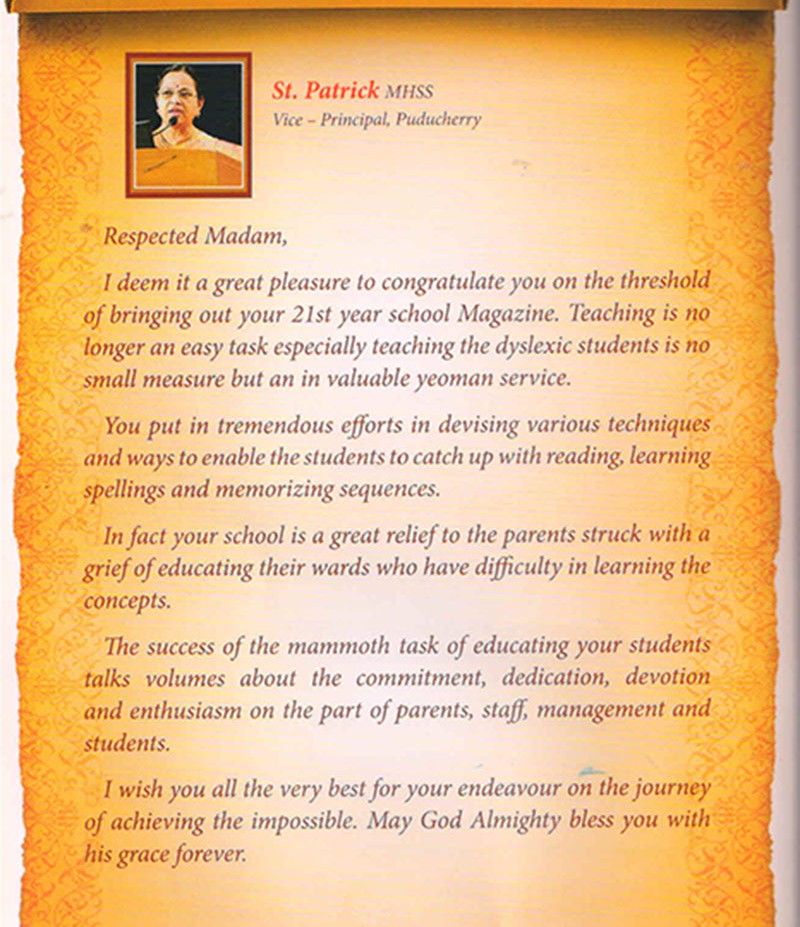 St. Patrick MHSS
Vice – Principal, Puducherry
Respected Madam,
I deem it a great pleasure to congratulate you on the threshold
of bringing out your 21st year school Magazine. Teaching is no
longer an easy task especially teaching the dyslexic students is no
small measure but an in valuable yeoman service.
You put in tremendous efforts in devising various techniques
and ways to enable the students to catch up with reading, learning
spellings and memorizing sequences.
In fact your school is a great relief to the parents struck with a
grief of educating their wards who have difficulty in learning the
concepts.
The success of the mammoth task of educating your students
talks volumes about the commitment, dedication, devotion
and enthusiasm on the part of parents, staff, management and
students.
I wish you all the very best for your endeavour on the journey
of achieving the impossible. May God Almighty bless you with
his grace forever.